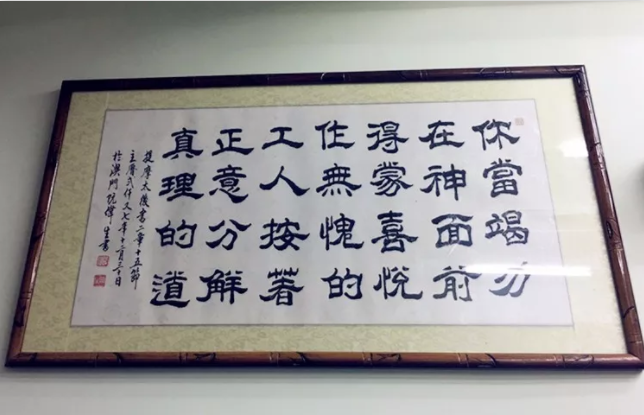 你當竭力
在神面前
得蒙喜悅
作無愧的
工人按著
正意分解
真理的道
提摩太後書二章十五節
主曆弍仟又七年十二月三十日
於澳門